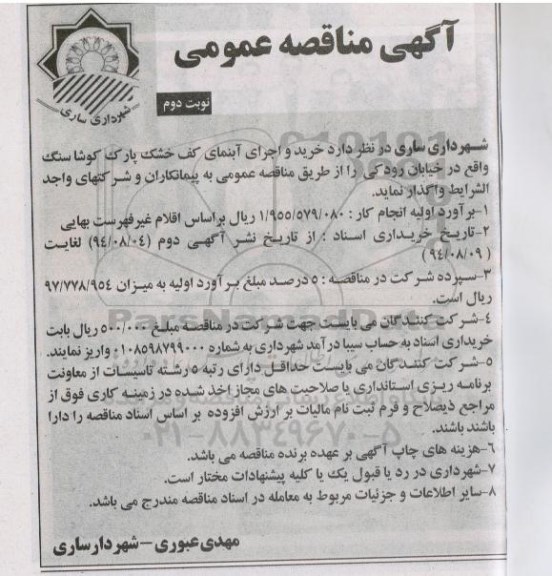 آگهی مناقصه عمومی
شهرداری ساری
نوبت دوم
شهرداری ساری در نظر دارد خرید و اجرای آبنمای کف خشک پارک کوشا سنگ
واقع در خیابان رودکی را از طریق مناقصه عمومی به پیمانکاران و شرکتهای واجد
الشرایط واگذار نماید.
۱-برآورد اولیه انجام کار : ۱/۹۵۵/۵۷۹/۰۸۰ ریال براساس اقلام غیرفهرست بهایی
۲-تاریخ خریداری اسناد : از تاریخ نشر آگهی دوم (۹۴/۰۸/۰۴) لغایت
(۹۴/۰۸/۰۹)
۳-سپرده شرکت در مناقصه : ۵ درصد مبلغ برآورد اولیه به میزان ۹۷/۷۷۸/۹۵۴
ریال است.
۴-شرکت کنندگان می بایست جهت شرکت در مناقصه مبلغ ۵۰۰/۰۰۰ ریال بابت
خریداری اسناد به حساب سیبا درآمد شهرداری به شماره ۰۱۰۸۵۹۸۷۹۹۰۰۰ واریز نمایند.
۵-شرکت کنندگان می بایست حداقل دارای رتبه ۵ رشته تاسیسات از معاونت
برنامه ریزی استانداری یا صلاحیت های مجاز اخذ شده در زمینه کاری فوق از
مراجع ذیصلاح و فرم ثبت نام مالیات بر ارزش افزوده بر اساس اسناد مناقصه را دارا
باشند باشند.
۶-هزینه های چاپ آگهی بر عهده برنده مناقصه می باشد.
۷-شهرداری در رد یا قبول یک یا کلیه پیشنهادات مختار است.
۸-سایر اطلاعات و جزئیات مربوط به معامله در اسناد مناقصه مندرج می باشد.
مهدی عبوری-شهردار ساری
ParsNamadData
۰۲۱-۸۸۳۴۹۶۷۰-۵